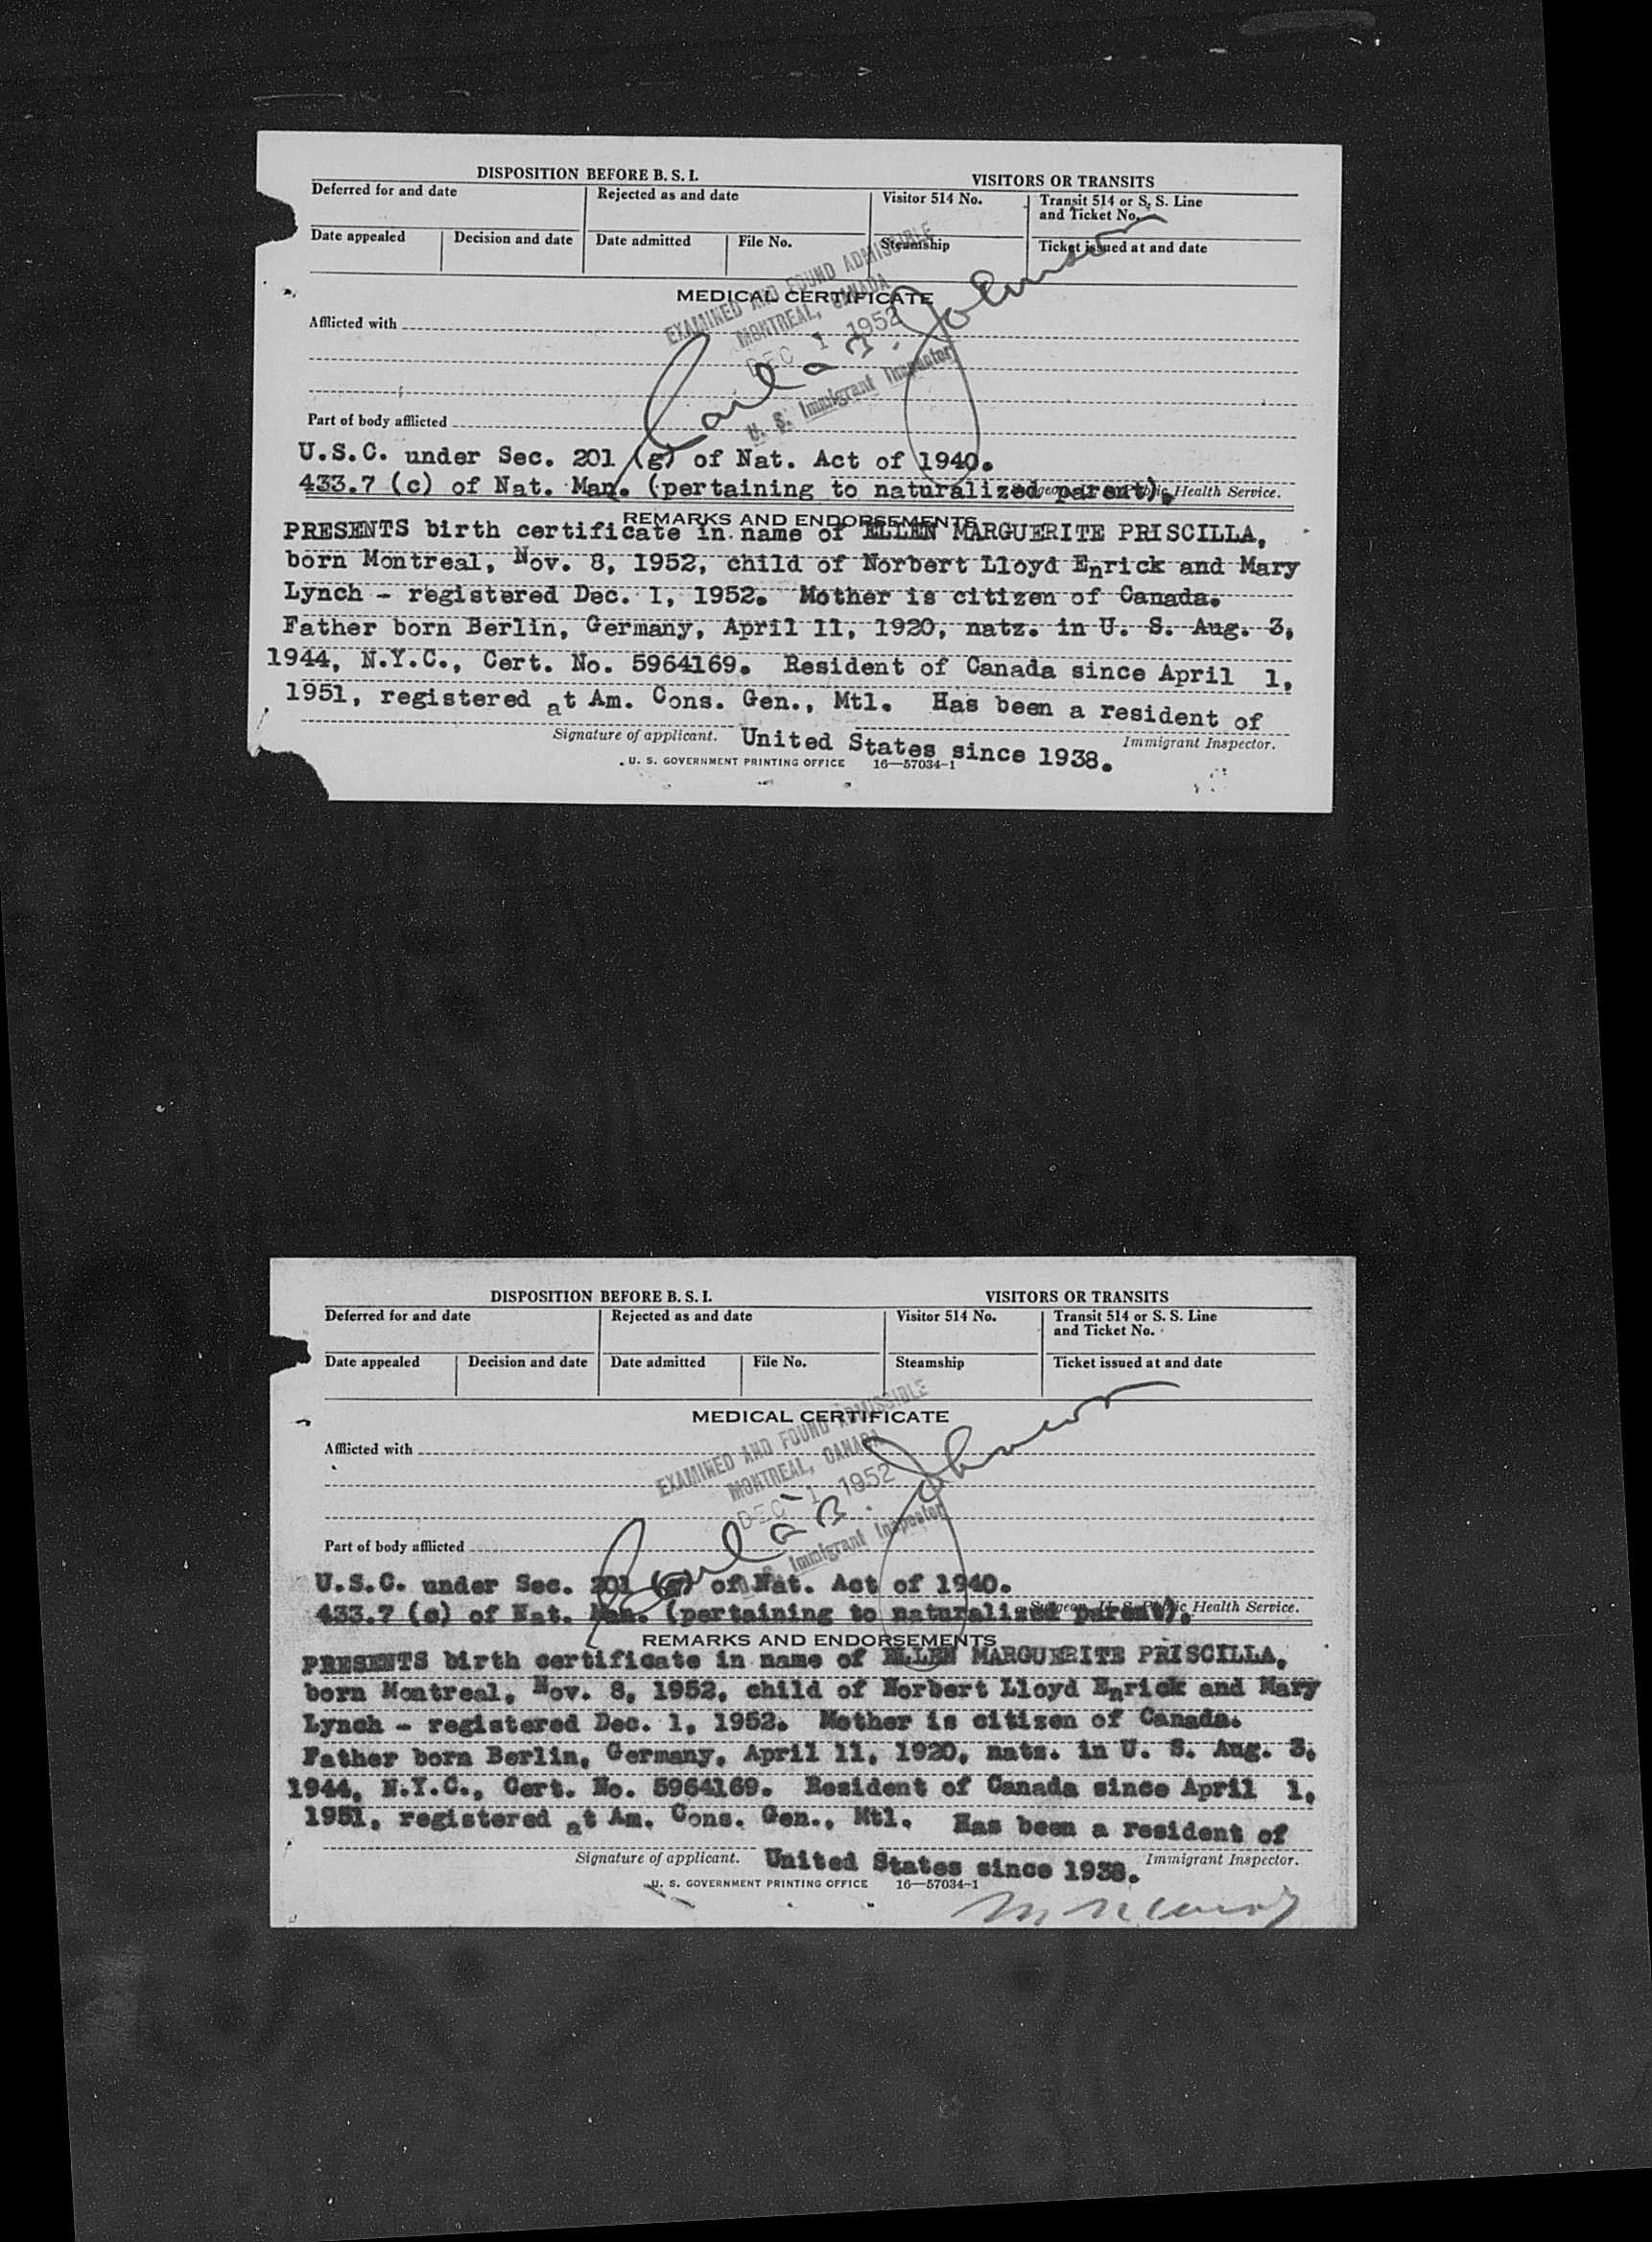 DISPOSITION BEFORE B. S. I.
VISITORS OR TRANSITS
Deferred for and date
Rejected as and date
Visitor 514 No.
Transit 514 or S. S. Line
and Ticket No.
Date appealed
Decision and date
Date admitted
File No.
Steamship
Ticket issued at and date
EXAMINED AND FOUND ADMISSIBLE
MONTREAL, CANADA
DEC 1 1952
U. S. Immigrant Inspector
MEDICAL CERTIFICATE
Afflicted with
Part of body afflicted
U.S.C. under Sec. 201 (g) of Nat. Act of 1940.
433.7 (c) of Nat. Man. (pertaining to naturalized parent).
Health Service.
REMARKS AND ENDORSEMENTS
PRESENTS birth certificate in name of ELLEN MARGUERITE PRISCILLA,
born Montreal, Nov. 8, 1952, child of Norbert Lloyd Enrick and Mary
Lynch - registered Dec. 1, 1952. Mother is citizen of Canada.
Father born Berlin, Germany, April 11, 1920, natz. in U. S. Aug. 3,
1944, N.Y.C., Cert. No. 5964169. Resident of Canada since April 1,
1951, registered at Am. Cons. Gen., Mtl. Has been a resident of
Signature of applicant. United States since 1938. Immigrant Inspector.
U. S. GOVERNMENT PRINTING OFFICE 16—57034-1
DISPOSITION BEFORE B. S. I.
VISITORS OR TRANSITS
Deferred for and date
Rejected as and date
Visitor 514 No.
Transit 514 or S. S. Line
and Ticket No.
Date appealed
Decision and date
Date admitted
File No.
Steamship
Ticket issued at and date
EXAMINED AND FOUND ADMISSIBLE
MONTREAL, CANADA
DEC 1 1952
Immigrant Inspector
MEDICAL CERTIFICATE
Afflicted with
Part of body afflicted
U.S.C. under Sec. 201 (g) of Nat. Act of 1940.
433.7 (c) of Nat. Man. (pertaining to naturalized parent).
Health Service.
REMARKS AND ENDORSEMENTS
PRESENTS birth certificate in name of ELLEN MARGUERITE PRISCILLA,
born Montreal, Nov. 8, 1952, child of Norbert Lloyd Enrick and Mary
Lynch - registered Dec. 1, 1952. Mother is citizen of Canada.
Father born Berlin, Germany, April 11, 1920, natz. in U. S. Aug. 3,
1944, N.Y.C., Cert. No. 5964169. Resident of Canada since April 1,
1951, registered at Am. Cons. Gen., Mtl. Has been a resident of
Signature of applicant. United States since 1938. Immigrant Inspector.
U. S. GOVERNMENT PRINTING OFFICE 16—57034-1